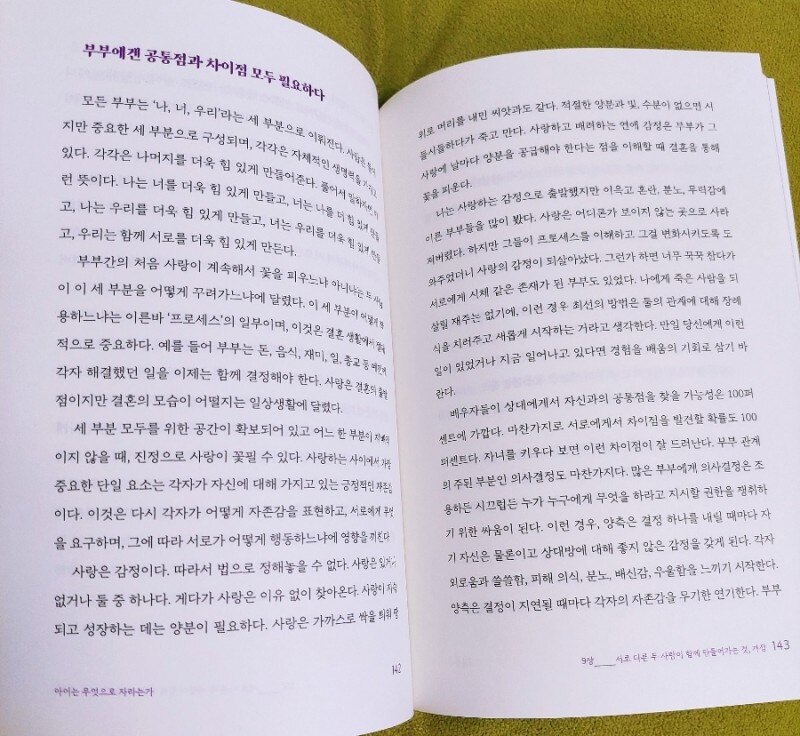 부부에겐 공통점과 차이점 모두 필요하다
모든 부부는 '나, 너, 우리'라는 세 부분으로 이뤄진다. 사람은
지만 중요한 세 부분으로 구성되며, 각각은 자체적인 생명력을
있다. 각각은 나머지를 더욱 힘 있게 만들어준다. 풀어서
런 뜻이다. 나는 너를 더욱 힘 있게 만들고, 너는 나를 더 힘 있게
고, 나는 우리를 더욱 힘 있게 만들고, 너는 우리를 더욱 힘 있게 만들
고, 우리는 함께 서로를 더욱 힘 있게 만든다.
부부간의 처음 사랑이 계속해서 꽃을 피우느냐 아니냐는 두 사람
이 이 세 부분을 어떻게 꾸려가느냐에 달렸다. 이 세 부분이 어떻게
용하느냐는 이른바 '프로세스'의 일부이며, 이것은 결혼 생활에서
적으로 중요하다. 예를 들어 부부는 돈, 음식, 재미, 일, 종교 등
각자 해결했던 일을 이제는 함께 결정해야 한다. 사랑은 결혼의 출발
점이지만 결혼의 모습이 어떨지는 일상생활에 달렸다.
세 부분 모두를 위한 공간이 확보되어 있고 어느 한 부분이
이지 않을 때, 진정으로 사랑이 꽃필 수 있다. 사랑하는 사이에서 가장
중요한 단일 요소는 각자가 자신에 대해 가지고 있는 긍정적인 자존감
이다. 이것은 다시 각자가 어떻게 자존감을 표현하고, 서로에게 무엇
을 요구하며, 그에 따라 서로가 어떻게 행동하느냐에 영향을 끼친다.
사랑은 감정이다. 따라서 법으로 정해놓을 수 없다. 사랑은 있거나
없거나 둘 중 하나다. 게다가 사랑은 이유 없이 찾아온다. 사랑이 지속
되고 성장하는 데는 양분이 필요하다. 사랑은 가까스로 싹을 틔워 땅
142
아이는 무엇으로 자라는가
위로 머리를 내민 씨앗과도 같다. 적절한 양분과 빛, 수분이 없으면 시
들시들하다가 죽고 만다. 사랑하고 배려하는 연애 감정은 부부가 그
사랑에 날마다 양분을 공급해야 한다는 점을 이해할 때 결혼을 통해
꽃을 피운다.
나는 사랑하는 감정으로 출발했지만 이윽고 혼란, 분노, 무력감에
이른 부부들을 많이 봤다. 사랑은 어디론가 보이지 않는 곳으로 사라
져버렸다. 하지만 그들이 프로세스를 이해하고 그걸 변화시키도록 도
와주었더니 사랑의 감정이 되살아났다. 그런가 하면 너무 꾹꾹 참다가
서로에게 시체 같은 존재가 된 부부도 있었다. 나에게 죽은 사람을 되
살릴 재주는 없기에, 이런 경우 최선의 방법은 둘의 관재에 대해 장례
식을 치러주고 새롭게 시작하는 거라고 생각한다. 만일 당신에게 이런
일이 있었거나 지금 일어나고 있다면 경험을 배움의 기회로 삼기 바
란다.
배우자들이 상대에게서 자신과의 공통점을 찾을 가능성은 100퍼
센트에 가깝다. 마찬가지로 서로에게서 차이점을 발견할 확률도 100
퍼센트다. 자녀를 키우다 보면 이런 차이점이 잘 드러난다. 부부 관계
의 주된 부분인 의사결정도 마찬가지다. 많은 부부에게 의사결정은 조
용하든 시끄럽든 누가 누구에게 무엇을 하라고 지시할 권한을 쟁취하
기 위한 싸움이 된다. 이런 경우, 양측은 결정 하나를 내릴 때마다 자
기 자신은 물론이고 상대방에 대해 좋지 않은 감정을 갖게 된다. 각자
외로움과 쓸쓸함, 피해 의식, 분노, 배신감, 우울함을 느끼기 시작한다.
양측은 결정이 지연될 때마다 각자의 자존감을 무기한 연기한다. 부부
9장____서로 다른 두 사람이 함께 만들어가는 것, 가정 143